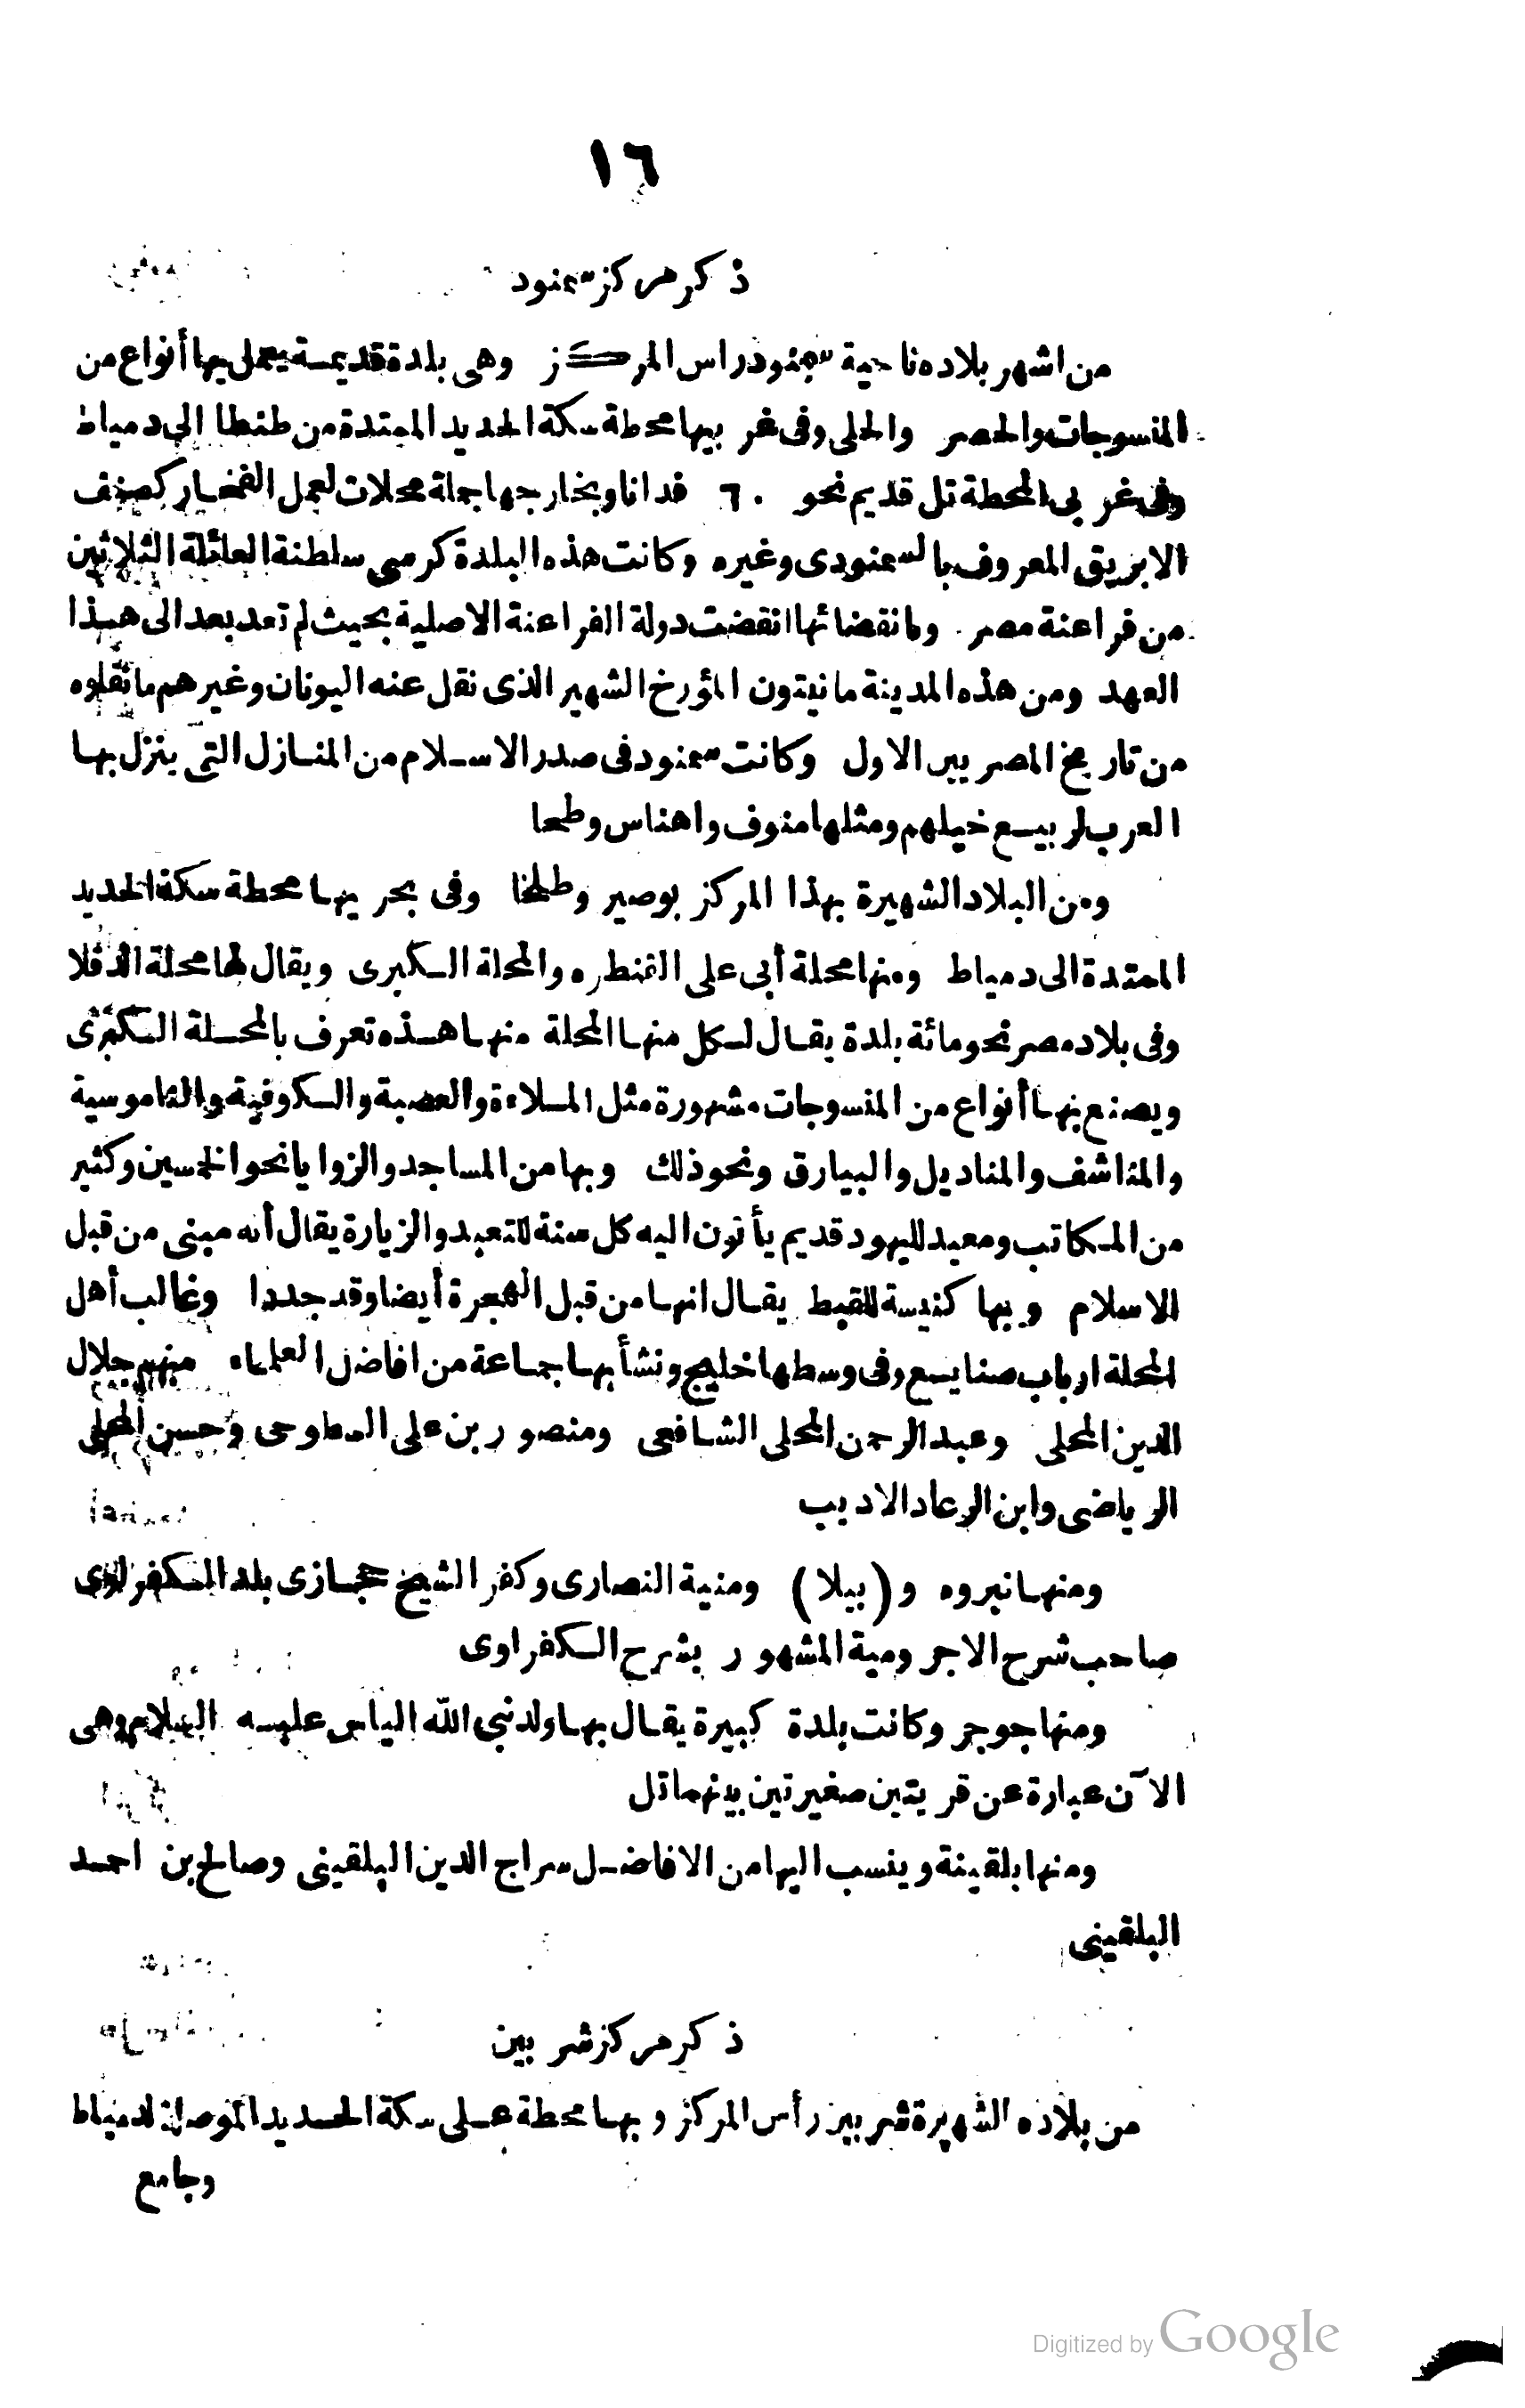 ١٦
ذكر مركز سمنود
من اشهر بلاده ناحية سمنود راس المركز وهى بلدة قديمة يعمل بها أنواع من
المنسوجات والحصر والحلى وفى غربيها محطة سكة الحديد الممتدة من طنطا الى دمياط
وفى غربى المحطة تل قديم نحو ٦٠ فدانا وبخارجها جملة محلات لعمل الفخار كصنف
الابريق المعروف بالسمنودى وغيره وكانت هذه البلدة كرسى سلطنة العائلة الثلاثين
من فراعنة مصر وبانقضائها انقضت دولة الفراعنة الاصلية بحيث لم تعد بعد الى هذا
العهد ومن هذه المدينة مانيتون المؤرخ الشهير الذى نقل عنه اليونان وغيرهم ما نقلوه
من تاريخ المصريين الاول وكانت سمنود فى صدر الاسلام من المنازل التى ينزل بها
العرب لربيع خيلهم ومثلها منوف واهناس وطحا
ومن البلاد الشهيرة بهذا المركز بوصير وطلخا وفى بحريها محطة سكة الحديد
الممتدة الى دمياط ومنها محلة أبى على القنطره والمحلة الكبرى ويقال لها محلة الدقلا
وفى بلاد مصر نحو مائة بلدة يقال لكل منها المحلة منها هذه تعرف بالمحلة الكبرى
ويصنع بها أنواع من المنسوجات مشهورة مثل الملاءة والعصبة والكوفية والناموسية
والمناشف والمناديل والبيارق ونحو ذلك وبها من المساجد والزوايا نحو الخمسين وكثير
من المكاتب ومعبد لليهود قديم يأتون اليه كل سنة للتعبد والزيارة يقال أنه مبنى من قبل
الاسلام وبها كنيسة للقبط يقال انها من قبل الهجرة أيضا وقد جددا وغالب أهل
المحلة ارباب صنايع وفى وسطها خليج ونشأ بها جماعة من افاضل العلماء منهم جلال
الدين المحلى وعبد الرحمن المحلى الشافعى ومنصور بن على السطوحى وحسن المحلى
الرياضى وابن الرعاد الاديب
ومنها نبروه و (بيلا) ومنية النصارى وكفر الشيخ حجازى بلد الكفراوى
صاحب شرح الاجرومية المشهور بشرح الكفراوى
ومنها جوجر وكانت بلدة كبيرة يقال بها ولد نبى الله الياس عليه السلام وهى
الآن عبارة عن قريتين صغيرتين بينهما تل
ومنها بلقينة وينسب اليها من الافاضل سراج الدين البلقينى وصالح بن احمد
البلقينى
ذكر مركز شربين
من بلاده الشهيرة شربين رأس المركز وبها محطة على سكة الحديد الموصلة لدمياط
وجامع
Digitized by Google